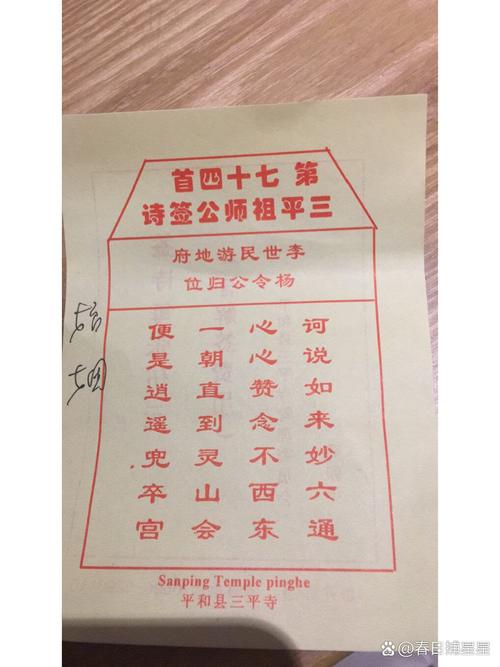 第七十四首
三平祖师公签诗
李世民游地府
杨令公归位
诃说如来妙六通
心心赞念不西东
一朝直到灵山会
便是逍遥兜卒宫
Sanping Temple pinghe
平和县三平寺
@春日捕星星